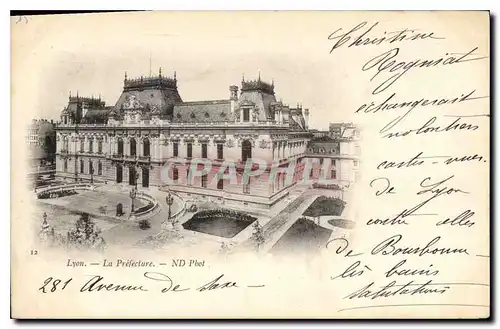 Christine
Rogniat
échangerait
volontiers
cartes-vues
de Lyon
contre elles
de Bourbonne
les bains
Salutations
CPRPHIL
12
Lyon. — La Préfecture. — ND Phot
281 Avenue de Saxe —